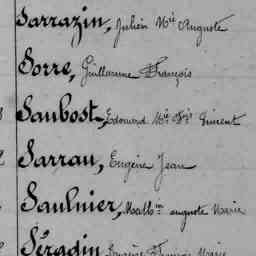 Sarrazin, Julien Mie Auguste
Sorre, Guillaume François
Saubost, Edouard Mie Fçs Vincent
Sarrau, Eugène Jean
Saulnier, Math.in auguste Marie
Séradin François Marie